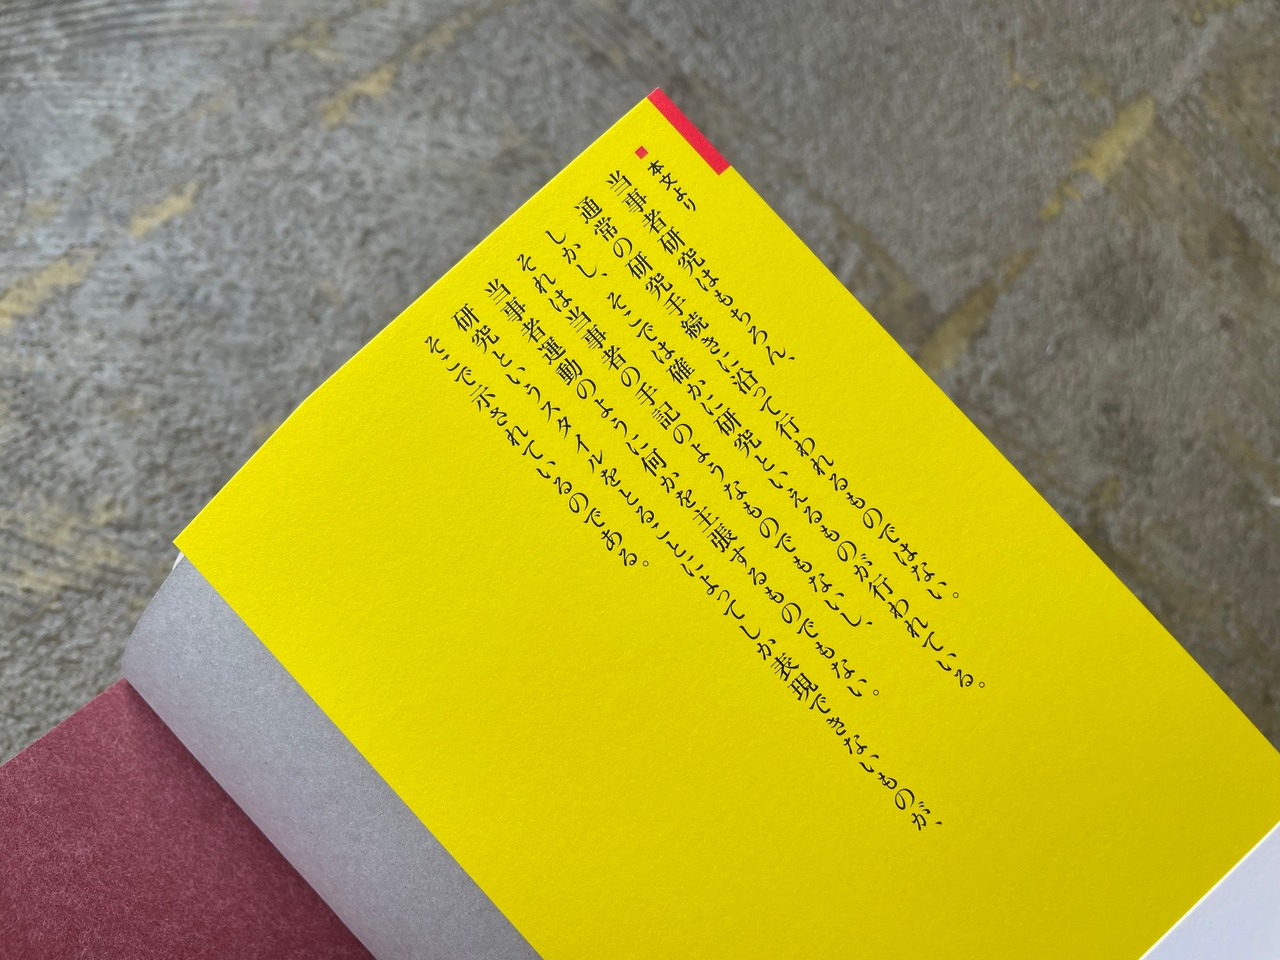 本文より
当事者研究はもちろん、
通常の研究手続きに沿って行われるものではない。
しかし、そこでは確かに研究といえるものが行われている。
それは当事者の手記のようなものでもないし、
当事者運動のように何かを主張するものでもない。
研究というスタイルをとることによってしか表現できないものが、
そこで示されているのである。